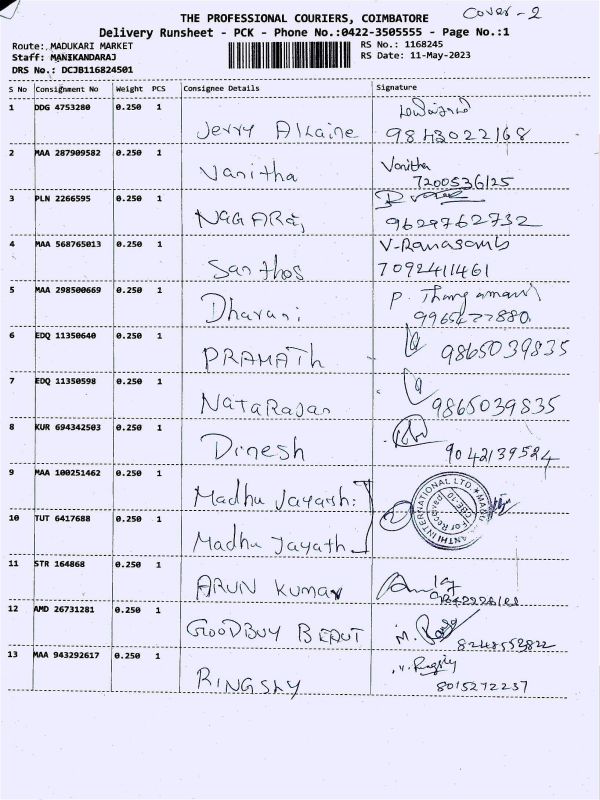 Cover - 2
THE PROFESSIONAL COURIERS, COIMBATORE
Delivery Runsheet - PCK - Phone No.:0422-3505555 - Page No.:1
Route: MADUKARI MARKET
RS No.: 1168245
Staff: MANIKANDARAJ
RS Date: 11-May-2023
DRS No.: DCJB116824501
S No Consignment No Weight PCS Consignee Details Signature
1 DDG 4753280 0.250 1
Jerry Allaine 9843022168
2 MAA 287909582 0.250 1 Vanitha
Vanitha 7200536125
3 PLN 2266595 0.250 1
NAGARaj 9629762732
4 MAA 568765013 0.250 1 V-Ramasamb
Santhos 7092411461
5 MAA 298500669 0.250 1 P. Thangamani
Dharani
6 EDQ 11350640 0.250 1
PRAMATh 9865039835
7 EDQ 11350598 0.250 1
NATARAJAN 9865039835
8 KUR 694342503 0.250 1
Dinesh 9042139524
9 MAA 100251462 0.250 1
Madhu Jayath
10 TUT 6417688 0.250 1
INTERNATIONAL LTD.
Madhu Jayath
11 STR 164868 0.250 1
ARUN KUMAR
12 AMD 26731281 0.250 1
GOODBUY BEAUT 8248552822
13 MAA 943292617 0.250 1
RINGSLY 8015272237